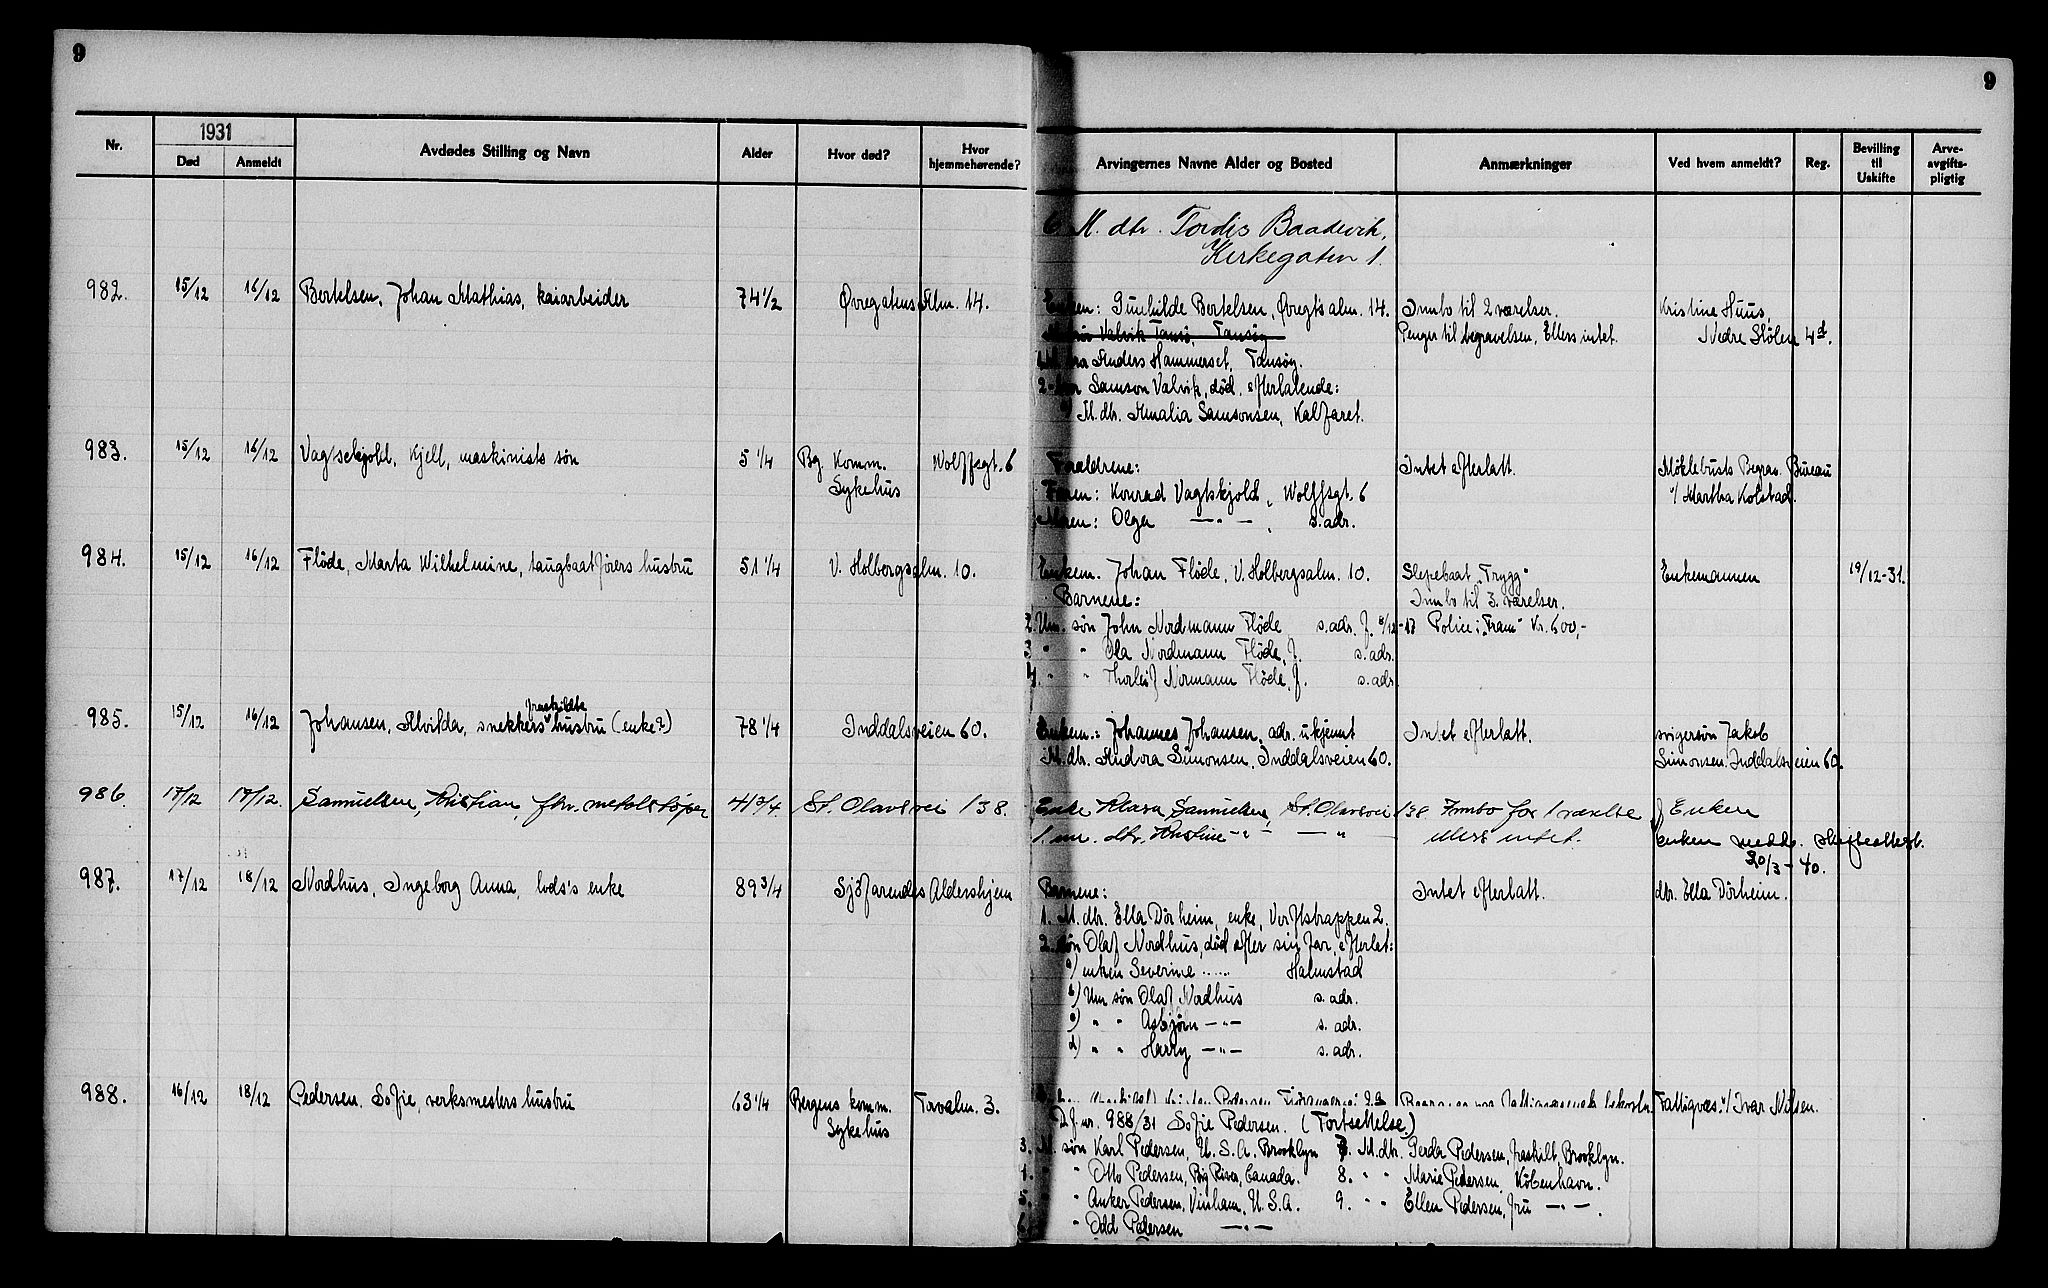 9
9
Nr.
1931
Død
Anmeldt
Avdødes Stilling og Navn
Alder
Hvor død?
Hvor hjemmehørende?
Arvingernes Navne Alder og Bosted
Anmærkninger
Ved hvem anmeldt?
Reg.
Bevilling til Uskifte
Arve-avgifts-pligtig
6 M. dtr. Tordis Baadevik,
Kirkegaten 1.
982. 15/12 16/12 Bertelsen, Johan Mathias, kaiarbeider 74 1/2 Øvregatens Alm. 14.
Enken: Gunhilde Bertelsen, Øvregts alm. 14. Innbo til 2 værelser. Kristine Huus,
Valvik Tansø, Tansøy Penger til begravelsen. Ellers intet. Nedre Stølen 4d.
Anders Hammerset, Tansøy.
2 Samson Valvik, død, efterlatende:
M. dtr. Amalia Samsonsen, Kalfaret.
983. 15/12 16/12 Vagtskjold, Kjell, maskinists søn 5 1/4 Bg. Komm. Sykehus Wolffsgt. 6
Foreldrene: Intet efterlatt. Møklebusts Begrav. Bureau
Faren: Konrad Vagtskjold, Wolffsgt. 6 v/ Martha Kolstad.
Moren: Olga —"— , s. adr.
984. 15/12 16/12 Fløde, Marta Wilhelmine, taugbaatførers hustru 51 1/4 V. Holbergsalm. 10.
Enkem. Johan Fløde, V. Holbergsalm. 10. Slepebaat "Trygg" Enkemannen 19/12-31.
Barnene: Innbo til 3 værelser.
2. Um. søn John Nordmann Fløde s. adr. f. 8/12-17 Police i "Fram" Kr. 600,-
3 " " Ola Nordmann Fløde, f. s. adr.
4. " " Thorleif Normann Fløde, f. s. adr.
985. 15/12 16/12 Johansen, Alvilda, snekkers fraskildte hustru (enke?) 78 1/4 Inddalsveien 60.
Enkem.: Johannes Johansen, adr. ukjennt Intet efterlatt. svigersøn Jakob
M. dtr. Andora Simonsen, Inddalsveien 60. Simonsen. Inddalsveien 60.
986. 17/12 17/12. Samuelsen, Kristian, fhv. metalstøper 41 3/4. St. Olavsvei 138.
Enke Klara Samuelsen, St. Olavsvei 138. Innbo for 1 værelse f Enken
1. um. dtr. Kristine —"— —"— ellers intet. enken medd. skifteattest.
20/3-40.
987. 17/12 18/12 Nordhus, Ingeborg Anna, lods's enke 89 3/4 Sjøfarendes Aldershjem
Barnene: Intet efterlatt. dtr. Ella Dörheim.
1. M. dtr. Ella Dörheim, enke, Verftstrappen 2.
2. søn Olaf Nordhus, død efter sin far, efterlet:
a) enken Severine ...... Halmstad
b) Um søn Olaf Nordhus s. adr.
c) " " Asbjørn —"— s. adr.
d) " " Harry —"— s. adr.
988. 16/12 18/12 Pedersen, Sofie, verksmesters hustru 63 1/4 Bergens komm. Sykehus Torvalm. 3.
Fattigvæs. v/ Ivar Nilsen.
D.f. nr. 988/31 Sofie Pedersen. (Fortsettelse.)
3. M. søn Karl Pedersen, U.S.A. Brooklyn 7. M. dtr. Gerda Pedersen, fraskilt, Brooklyn.
4. " " Otto Pedersen, Big River, Canada. 8. " " Marie Pedersen, København.
5. " " Anker Pedersen, Vinham, U.S.A. 9. " " Ellen Pedersen, fru —"—.
6. " Odd Pedersen —"—